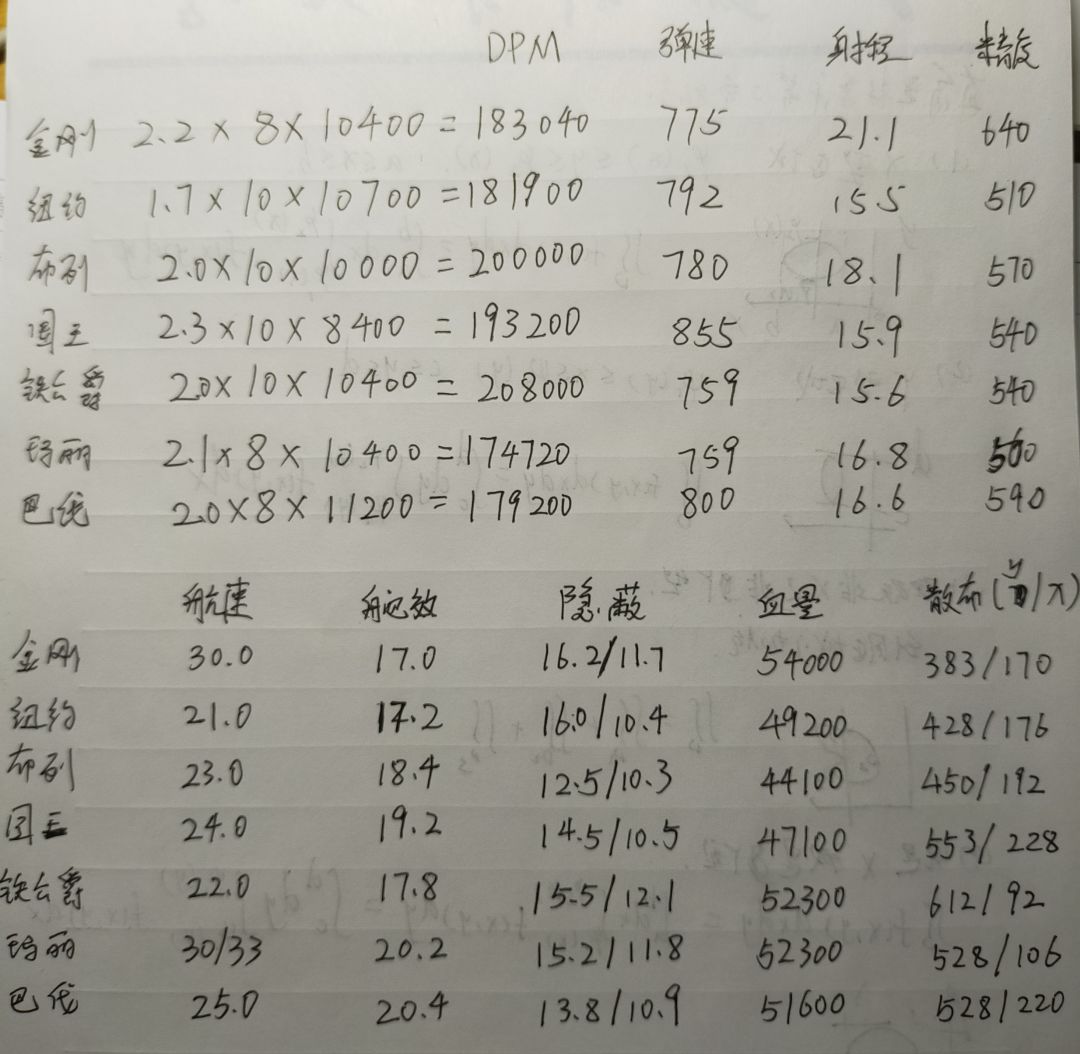 DPM 弹速 射程 精度
金刚 2.2 × 8 × 10400 = 183040 775 21.1 640
纽约 1.7 × 10 × 10700 = 181900 792 15.5 510
布列 2.0 × 10 × 10000 = 200000 780 18.1 570
国王 2.3 × 10 × 8400 = 193200 855 15.9 540
铁公爵 2.0 × 10 × 10400 = 208000 759 15.6 540
玛丽 2.1 × 8 × 10400 = 174720 759 16.8
巴伐 2.0 × 8 × 11200 = 179200 800 16.6 590
航速 舵效 隐蔽 血量 散布 (y/x)
金刚 30.0 17.0 16.2/11.7 54000 383/170
纽约 21.0 17.2 16.0/10.4 49200 428/176
布列 23.0 18.4 12.5/10.3 44100 450/192
国王 24.0 19.2 14.5/10.5 47100 553/228
铁公爵 22.0 17.8 15.5/12.1 52300 612/92
玛丽 30/33 20.2 15.2/11.8 52300 528/106
巴伐 25.0 20.4 13.8/10.9 51600 528/220